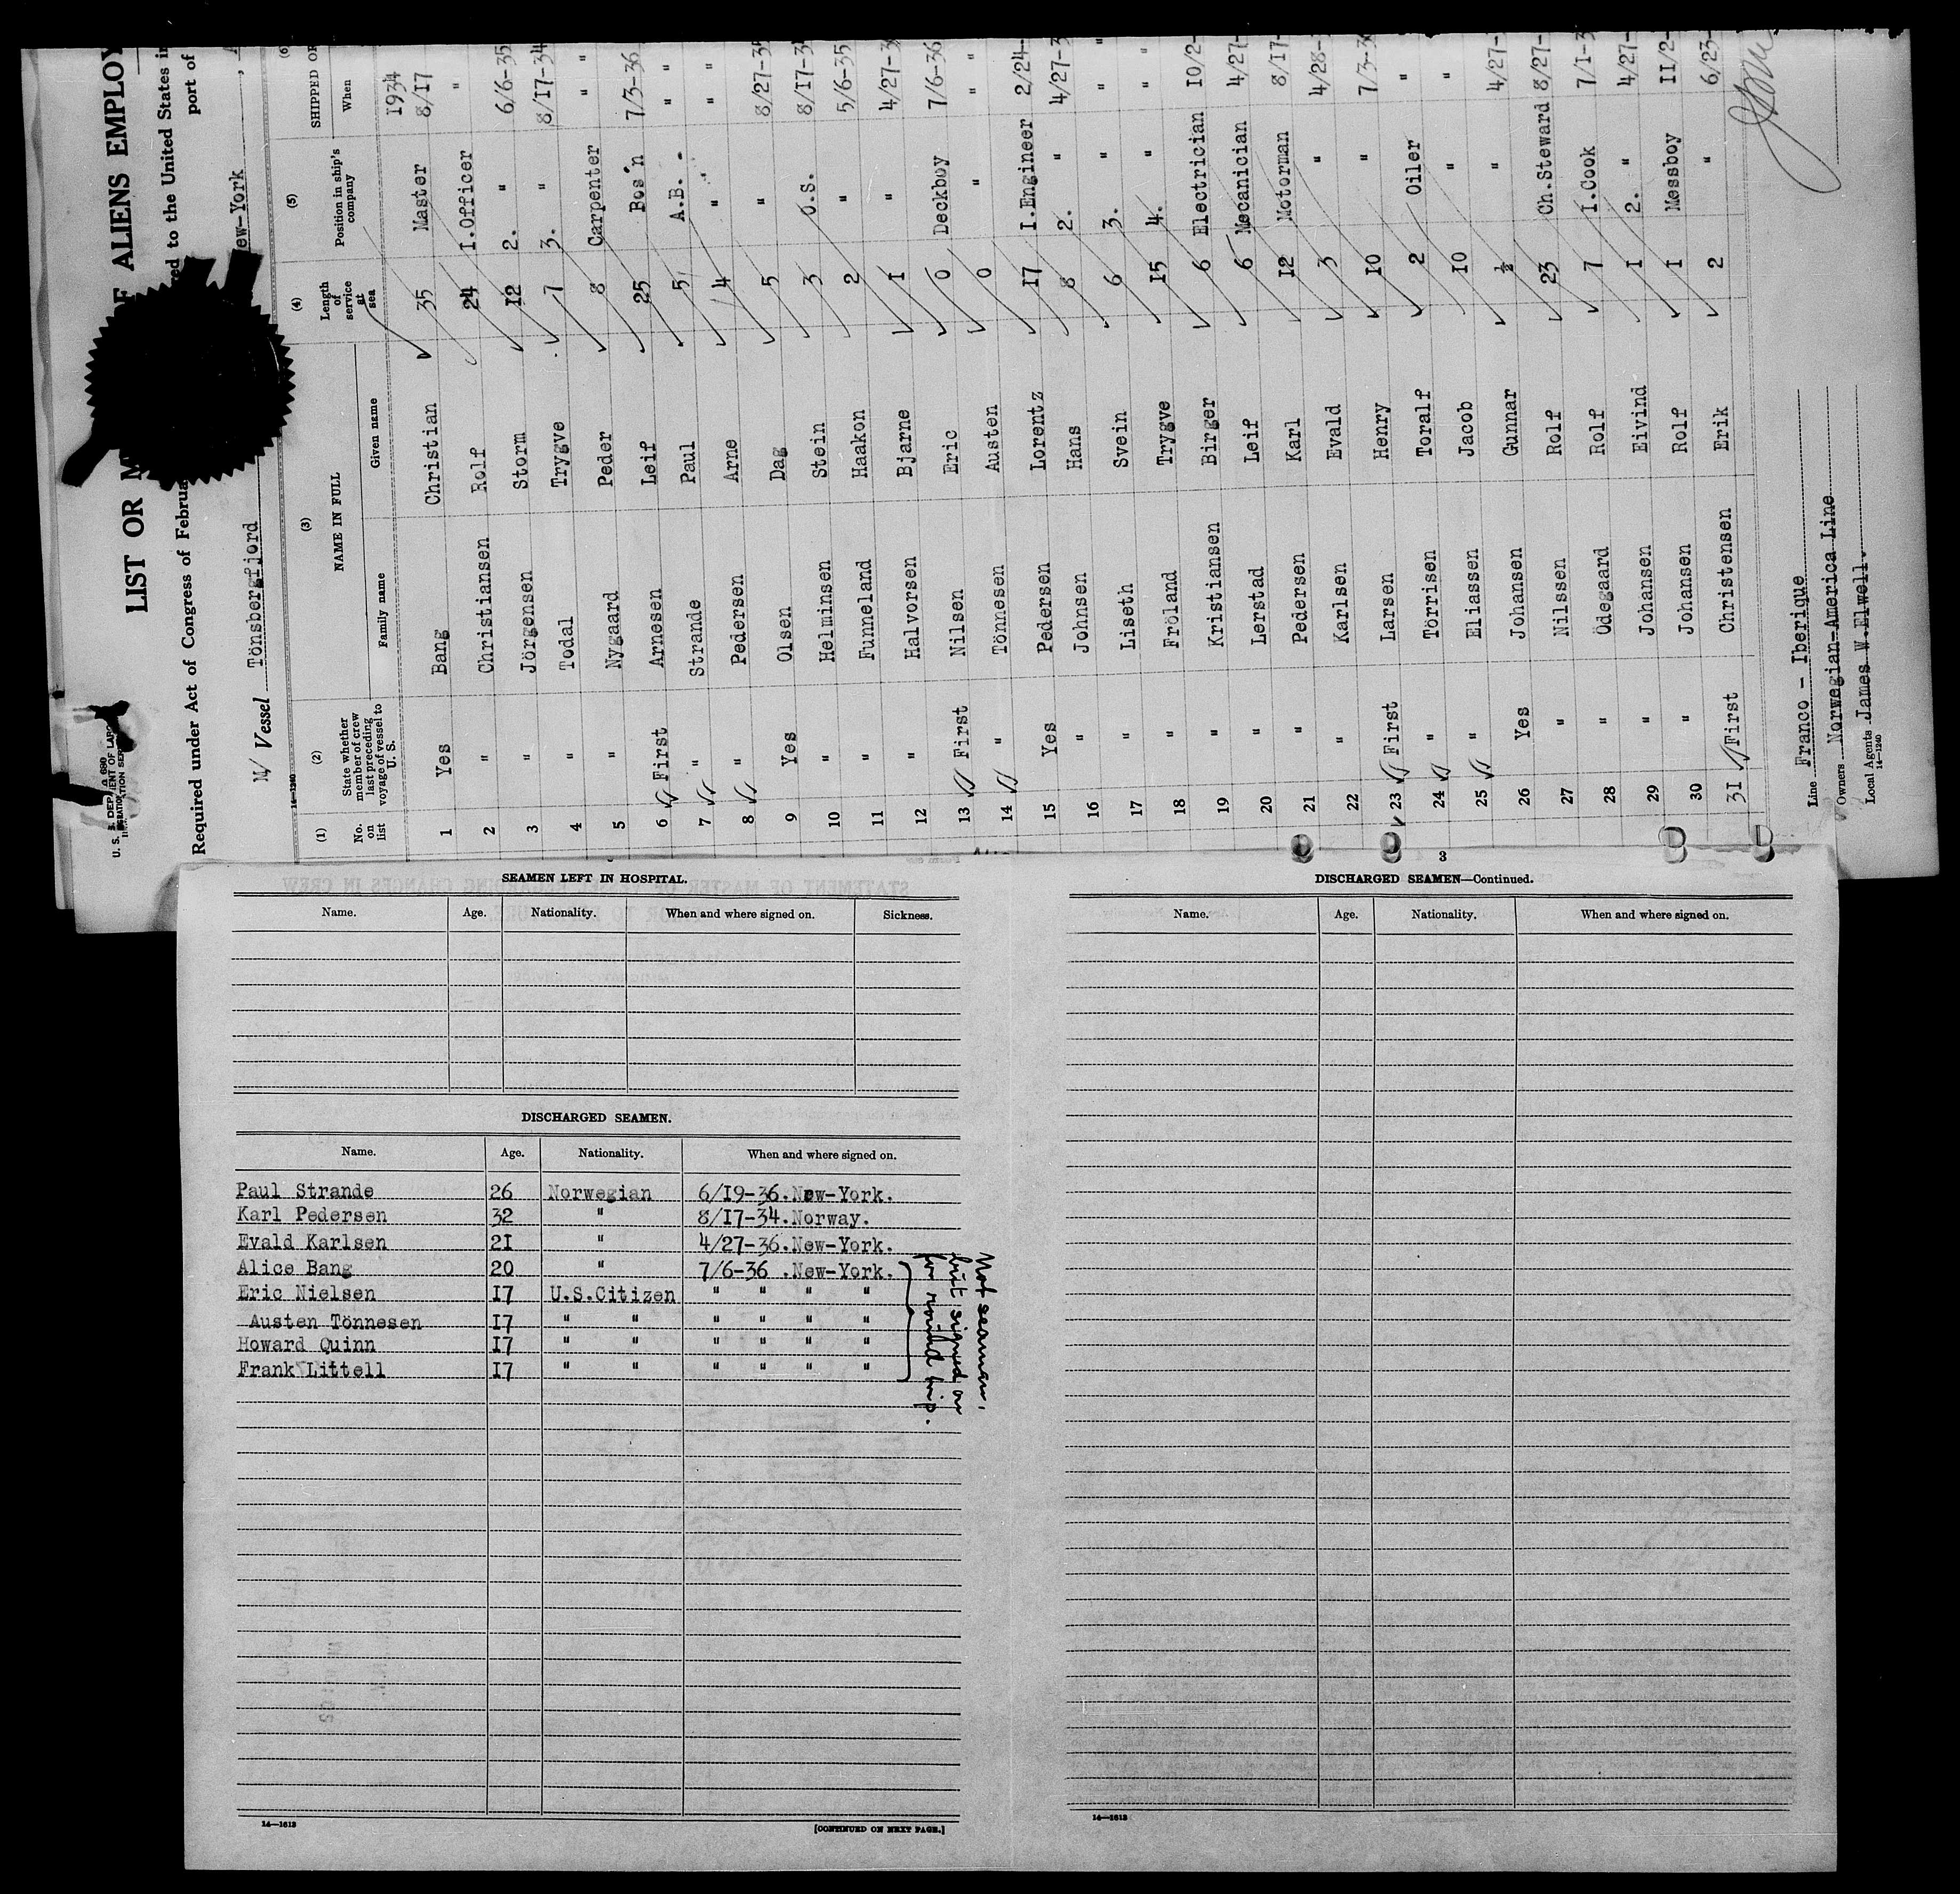 U. S. DEPARTMENT OF LABOR
LIST OR OF ALIENS EMPLOY
Required under Act of Congress of Februa red to the United States in
port of
M/ Vessel Tönsbergfjord ew-York
14-1240
(1) (2) (3) (4) (5) (6)
No. on list
State whether member of crew last preceding voyage of vessel to U. S.
NAME IN FULL
Family name Given name
Length of service at sea
Position in ship's company
SHIPPED OR
When
1934
1 Yes Bang Christian 35 Master 8/17
2 " Christiansen Rolf 24 I.Officer "
3 " Jörgensen Storm 12 2. " 6/6-35
4 " Todal Trygve 7 3. " 8/17-34
5 " Nygaard Peder 8 Carpenter "
6 First Arnesen Leif 25 Bos'n 7/3-36
7 " Strande Paul 5 A.B. "
8 " Pedersen Arne 4 " "
9 Yes Olsen Dag 5 " 8/27-35
10 " Helminsen Stein 3 O.S. 8/17-34
11 " Funneland Haakon 2 " 5/6-35
12 " Halvorsen Bjarne 1 " 4/27-3
13 First Nilsen Eric 0 Deckboy 7/6-36
14 " Tönnesen Austen 0 " "
15 Yes Pedersen Lorentz 17 I.Engineer 2/24-
16 " Johnsen Hans 8 2. " 4/27-3
17 " Liseth Svein 6 3. " "
18 " Fröland Trygve 15 4. " "
19 " Kristiansen Birger 6 Electrician 10/2-
20 " Lerstad Leif 6 Mecanician 4/27-
21 " Pedersen Karl 12 Motorman 8/17-
22 " Karlsen Evald 3 " 4/28-
23 First Larsen Henry 10 " 7/3-3
24 " Törrisen Toralf 2 Oiler "
25 " Eliassen Jacob 10 " "
26 Yes Johansen Gunnar ½ " 4/27-
27 " Nilssen Rolf 23 Ch.Steward 8/27-
28 " Ödegaard Rolf 7 I.Cook 7/1-3
29 " Johansen Eivind 1 2. " 4/27-
30 " Johansen Rolf 1 Messboy 11/2-
31 First Christensen Erik 2 " 6/23-
Line Franco - Iberique
Owners Norwegian-America Line
Local Agents James W.Elwell.
14-1240
3
SEAMEN LEFT IN HOSPITAL.
Name. Age. Nationality. When and where signed on. Sickness.
DISCHARGED SEAMEN.
Name. Age. Nationality. When and where signed on.
Paul Strande 26 Norwegian 6/19-36.New-York.
Karl Pedersen 32 " 8/17-34.Norway.
Evald Karlsen 21 " 4/27-36.New-York.
Alice Bang 20 " 7/6-36 .New-York.
Eric Nielsen 17 U.S.Citizen " " " "
Austen Tönnesen 17 " " " " " "
Howard Quinn 17 " " " " " "
Frank Littell 17 " " " " " "
Not seaman,
but signed on
for round trip.
14—1613
[CONTINUED ON NEXT PAGE.]
DISCHARGED SEAMEN—Continued.
Name. Age. Nationality. When and where signed on.
14—1613